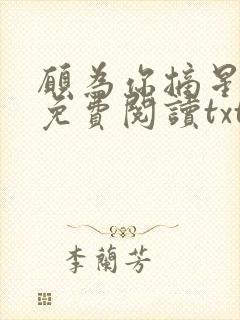 願為你摘星
免費閱讀txt
李蘭芳